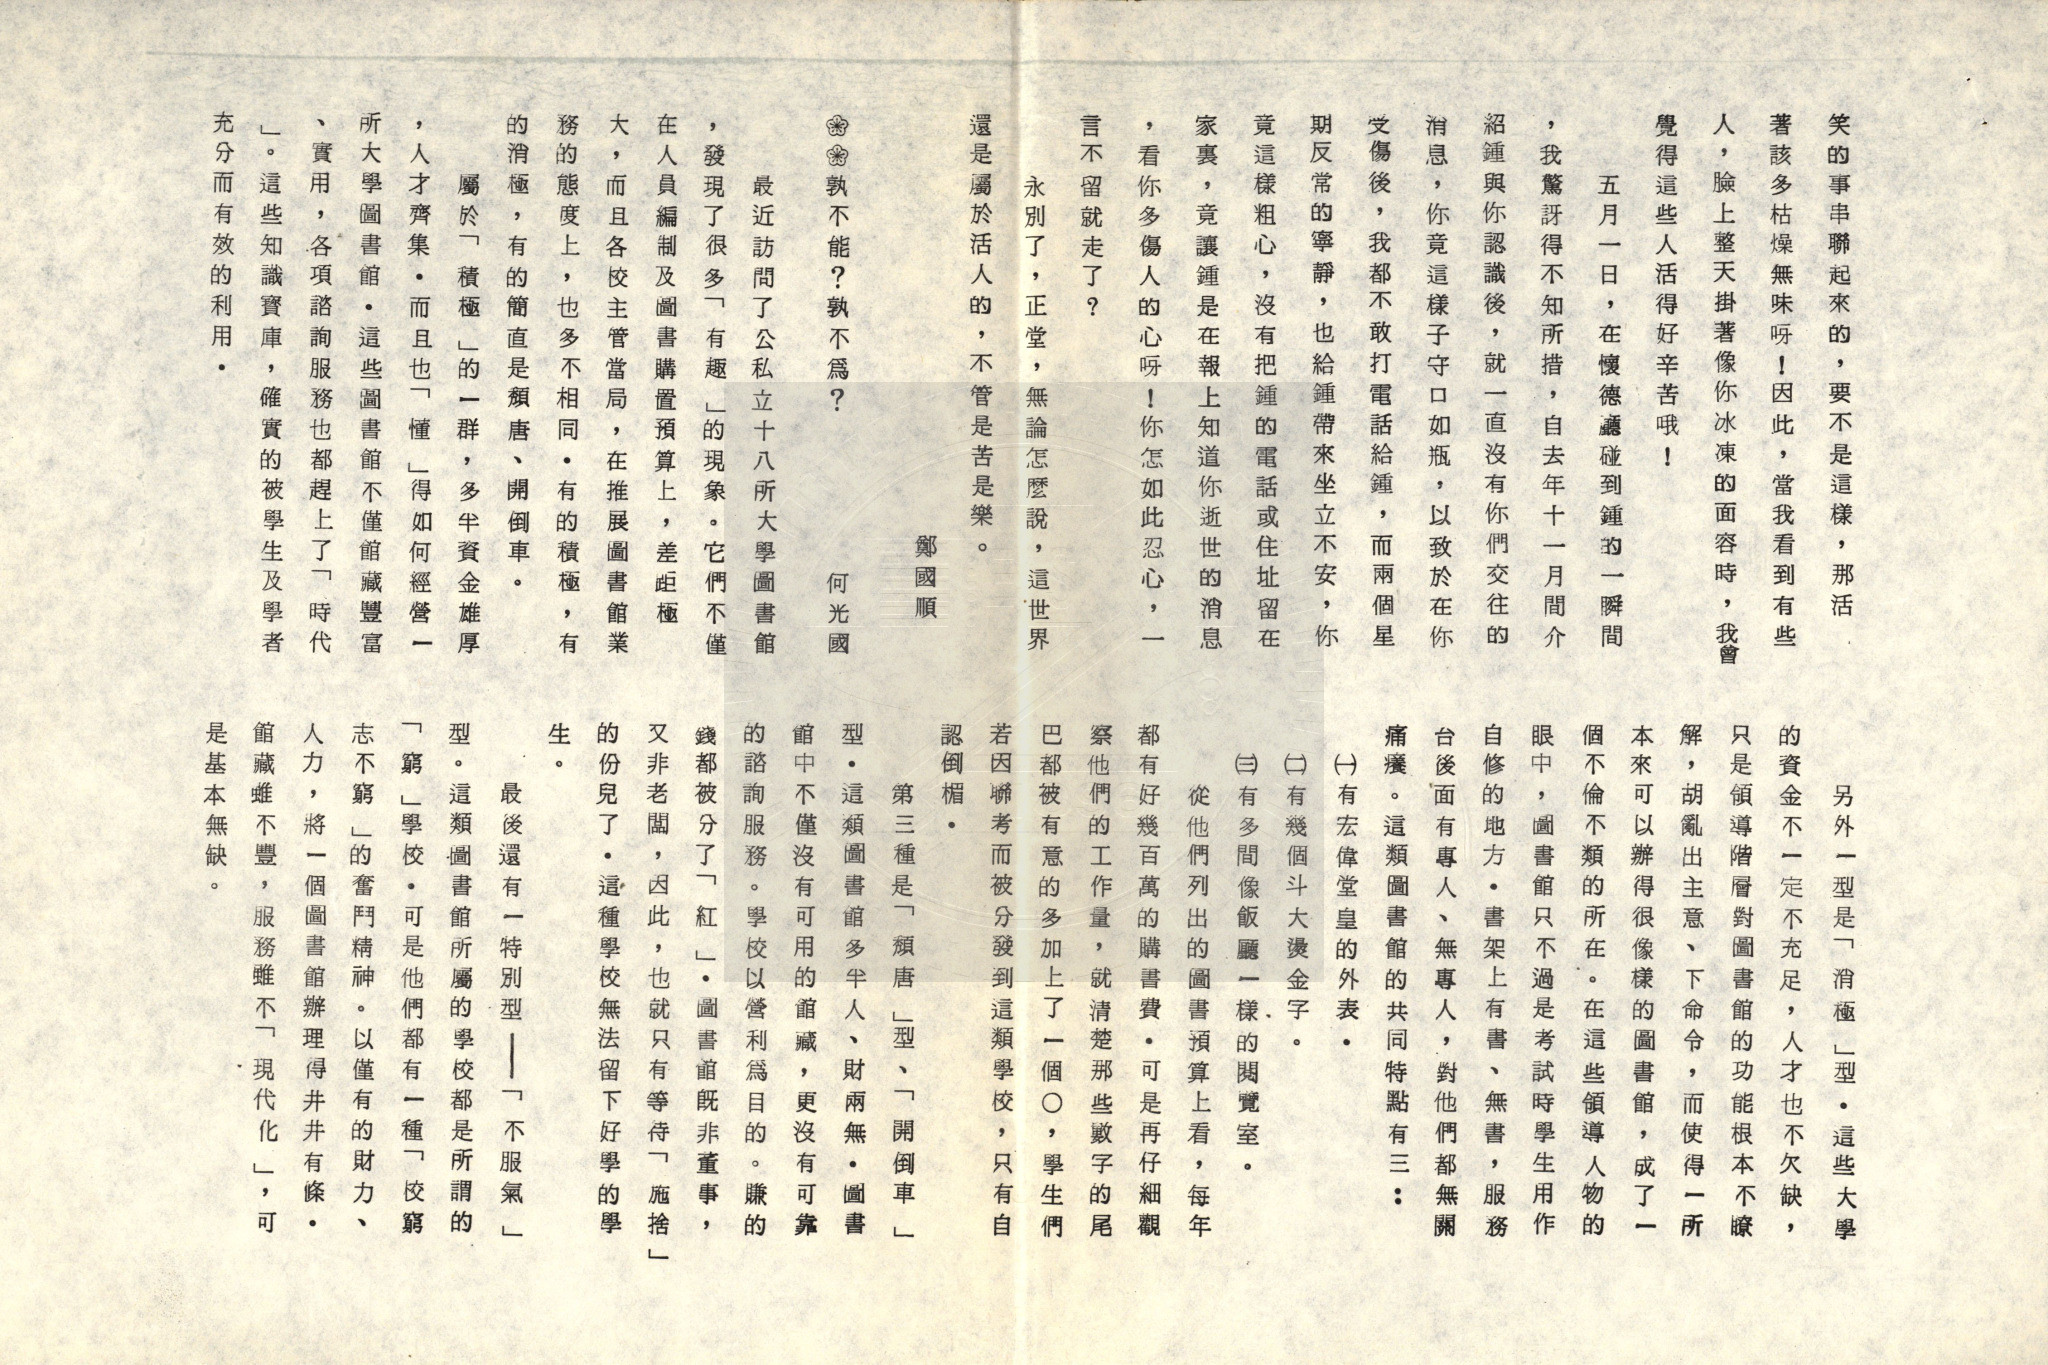 笑的事串聯起來的，要不是這樣，那活
著該多枯燥無味呀！因此，當我看到有些
人，臉上整天掛著像你冰凍的面容時，我曾
覺得這些人活得好辛苦哦！
五月一日，在懷德廳碰到鍾的一瞬間
，我驚訝得不知所措，自去年十一月間介
紹鍾與你認識後，就一直沒有你們交往的
消息，你竟這樣子守口如瓶，以致於在你
受傷後，我都不敢打電話給鍾，而兩個星
期反常的寧靜，也給鍾帶來坐立不安，你
竟這樣粗心，沒有把鍾的電話或住址留在
家裏，竟讓鍾是在報上知道你逝世的消息
，看你多傷人的心呀！你怎如此忍心，一
言不留就走了？
永別了，正堂，無論怎麼說，這世界
還是屬於活人的，不管是苦是樂。
鄭國順
❀❀孰不能？孰不爲？
何光國
最近訪問了公私立十八所大學圖書館
，發現了很多「有趣」的現象。它們不僅
在人員編制及圖書購置預算上，差距極
大，而且各校主管當局，在推展圖書館業
務的態度上，也多不相同．有的積極，有
的消極，有的簡直是頹唐、開倒車。
屬於「積極」的一群，多半資金雄厚
，人才齊集．而且也「懂」得如何經營一
所大學圖書館．這些圖書館不僅館藏豐富
、實用，各項諮詢服務也都趕上了「時代
」。這些知識寶庫，確實的被學生及學者
充分而有效的利用．
另外一型是「消極」型．這些大學
的資金不一定不充足，人才也不欠缺，
只是領導階層對圖書館的功能根本不瞭
解，胡亂出主意、下命令，而使得一所
本來可以辦得很像樣的圖書館，成了一
個不倫不類的所在。在這些領導人物的
眼中，圖書館只不過是考試時學生用作
自修的地方．書架上有書、無書，服務
台後面有專人、無專人，對他們都無關
痛癢。這類圖書館的共同特點有三：
㈠有宏偉堂皇的外表．
㈡有幾個斗大燙金字。
㈢有多間像飯廳一樣的閱覽室。
從他們列出的圖書預算上看，每年
都有好幾百萬的購書費．可是再仔細觀
察他們的工作量，就清楚那些數字的尾
巴都被有意的多加上了一個○，學生們
若因聯考而被分發到這類學校，只有自
認倒楣．
第三種是「頹唐」型、「開倒車」
型．這類圖書館多半人、財兩無．圖書
館中不僅沒有可用的館藏，更沒有可靠
的諮詢服務。學校以營利爲目的。賺的
錢都被分了「紅」．圖書館既非董事，
又非老闆，因此，也就只有等待「施捨」
的份兒了．這種學校無法留下好學的學
生。
最後還有一特別型——「不服氣」
型。這類圖書館所屬的學校都是所謂的
「窮」學校．可是他們都有一種「校窮
志不窮」的奮鬥精神。以僅有的財力、
人力，將一個圖書館辦理得井井有條．
館藏雖不豐，服務雖不「現代化」，可
是基本無缺。